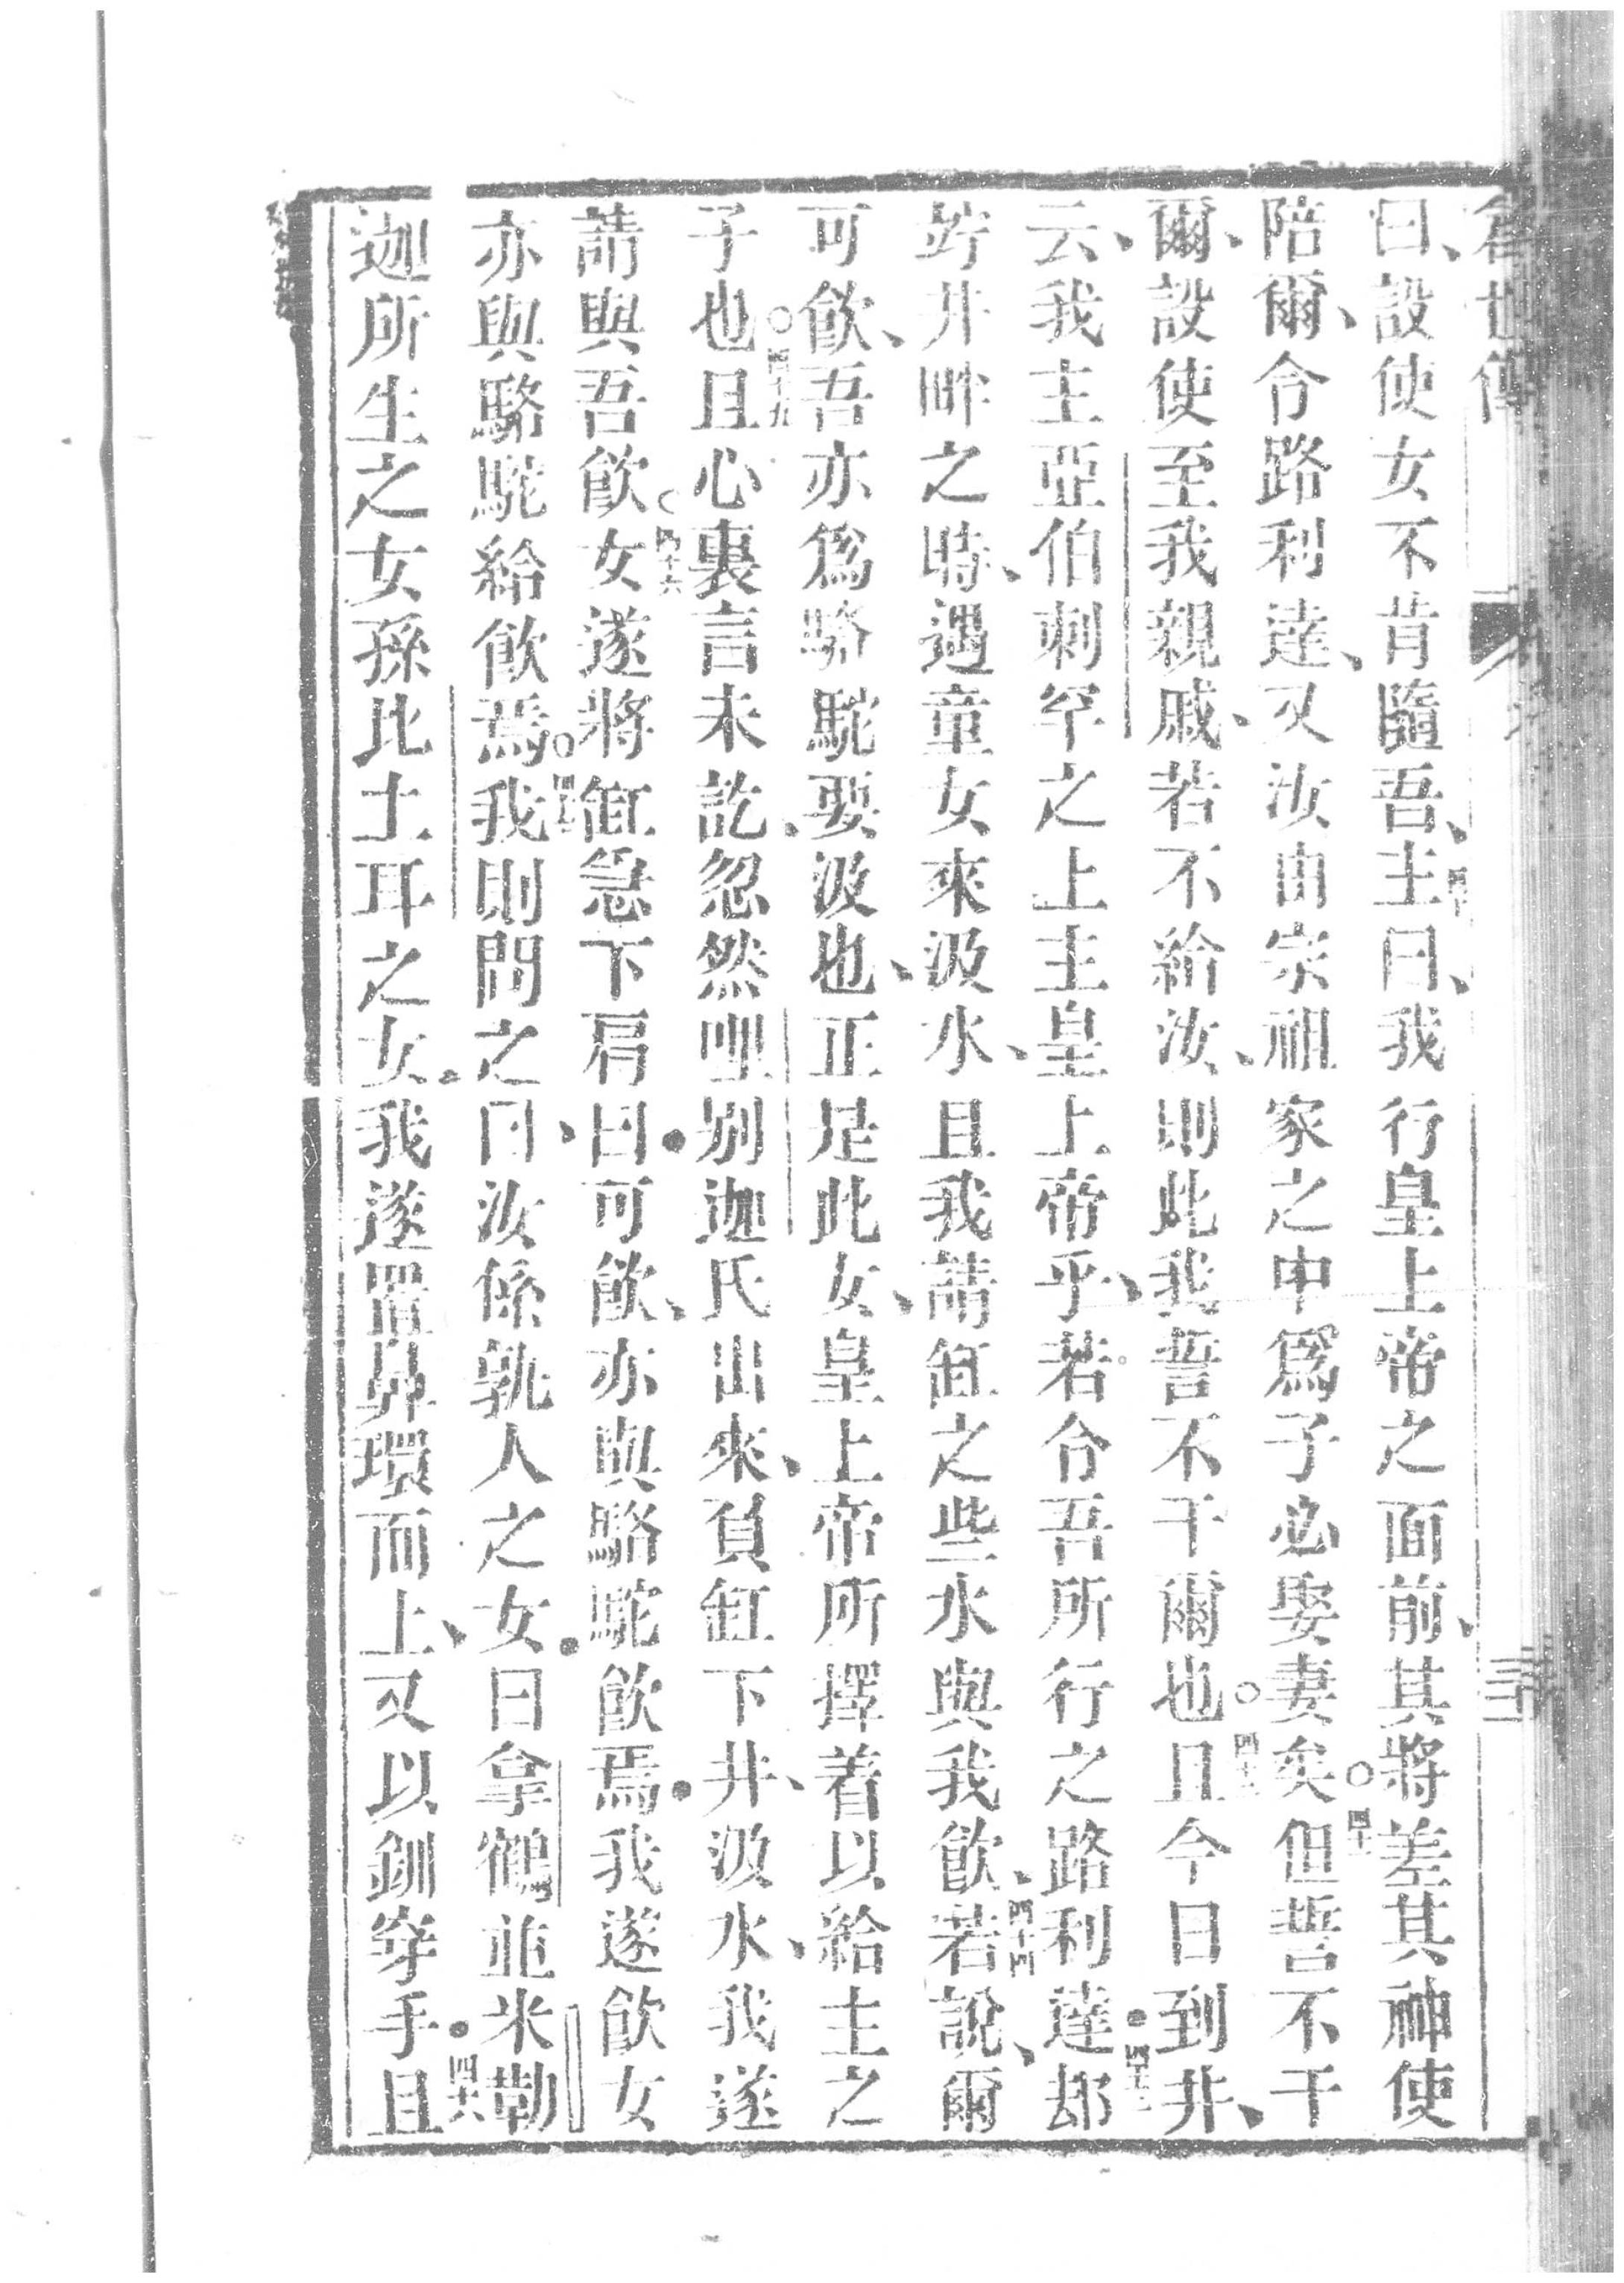 曰、設使女不肯隨吾、主曰、我行皇上帝之面前、其將差其神使
陪爾、令路利達、又汝由宗祖家之中爲子必娶妻矣○但誓不干
爾、設使至我親戚、若不給汝、則此我誓不干爾也○且今日到井、
云、我主亞伯剌罕之上主皇上帝乎、若合吾所行之路利達却
竚井畔之時、遇童女來汲水、且我請缸之些水與我飲、若說、爾
可飲、吾亦爲駱駝要汲也、正是此女、皇上帝所擇着以給主之
子也○且心裏言未訖、忽然哩別迦氏出來、負缸下井、汲水、我遂
請與吾飲○女遂將缸急下肩、曰可飲、亦與駱駝飲焉我遂飲女
亦與駱駝給飲焉○我則問之曰汝係孰人之女曰拿鶴並米勒
迦所生之女孫比土耳之女我遂置鼻環而上、又以釧穿手四十八且